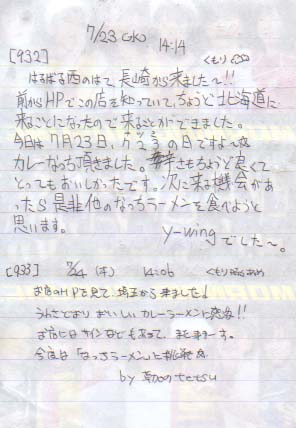 7/23 (水) 14:14
[932] くもり
はるばる西のはて、長崎から来ました〜!!
前からHPでこの店を知っていて、ちょうど北海道に
来ることになったので来ることができました。
今日は7月23日、ﾅｯﾁ 2 3 の日ですよ〜
カレーなっち頂きました。辛さもちょうど良くて
とってもおいしかったです。次に来る機会があ
ったら是非他のなっちラーメンを食べようと
思います。
y-wingでした〜。
[933] 7/24 (木) 14:06 くもり
お店のHPを見て、埼玉から来ました!
おいしいカレーラーメンに
お店にはサインなどもあって、また来ます。
今度は「なっちラーメン」に挑戦
by tetsu